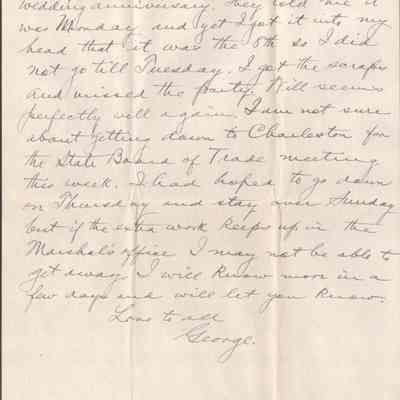 wedding anniversary. They told me it
was Monday and yet I got it into my
head that it was the 8th so I did
not go till Tuesday. I got the scraps
and missed the party. Will seems
perfectly well again. I am not sure
about getting down to Charleston for
the State Board of Trade meeting
this week. I had hoped to go down
on Thursday and stay over Sunday
but if the extra work keeps up in the
Marshal's office I may not be able to
get away. I will know more in a
few days and will let you know.
Love to all
George.